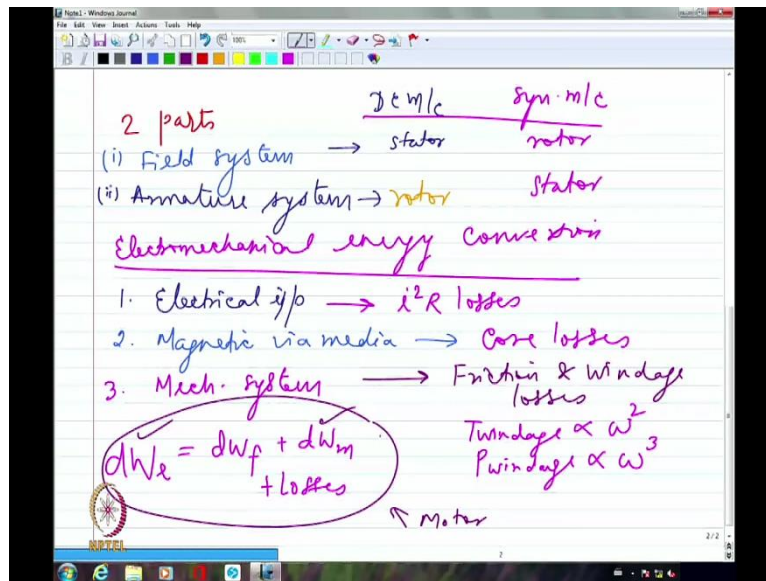 Note1 - Windows Journal
File Edit View Insert Actions Tools Help
100%
B I
DC M/c Syn. m/c
2 parts
(i) Field system → stator rotor
(ii) Armature system → rotor stator
Electromechanical energy conversion
1. Electrical i/p → i²R losses
2. Magnetic via media → Core losses
3. Mech. system → Friction & Windage
losses
dWe = dWf + dWm
+ Losses
Twindage ∝ ω²
Pwindage ∝ ω³
Motor
NPTEL
2/2
2